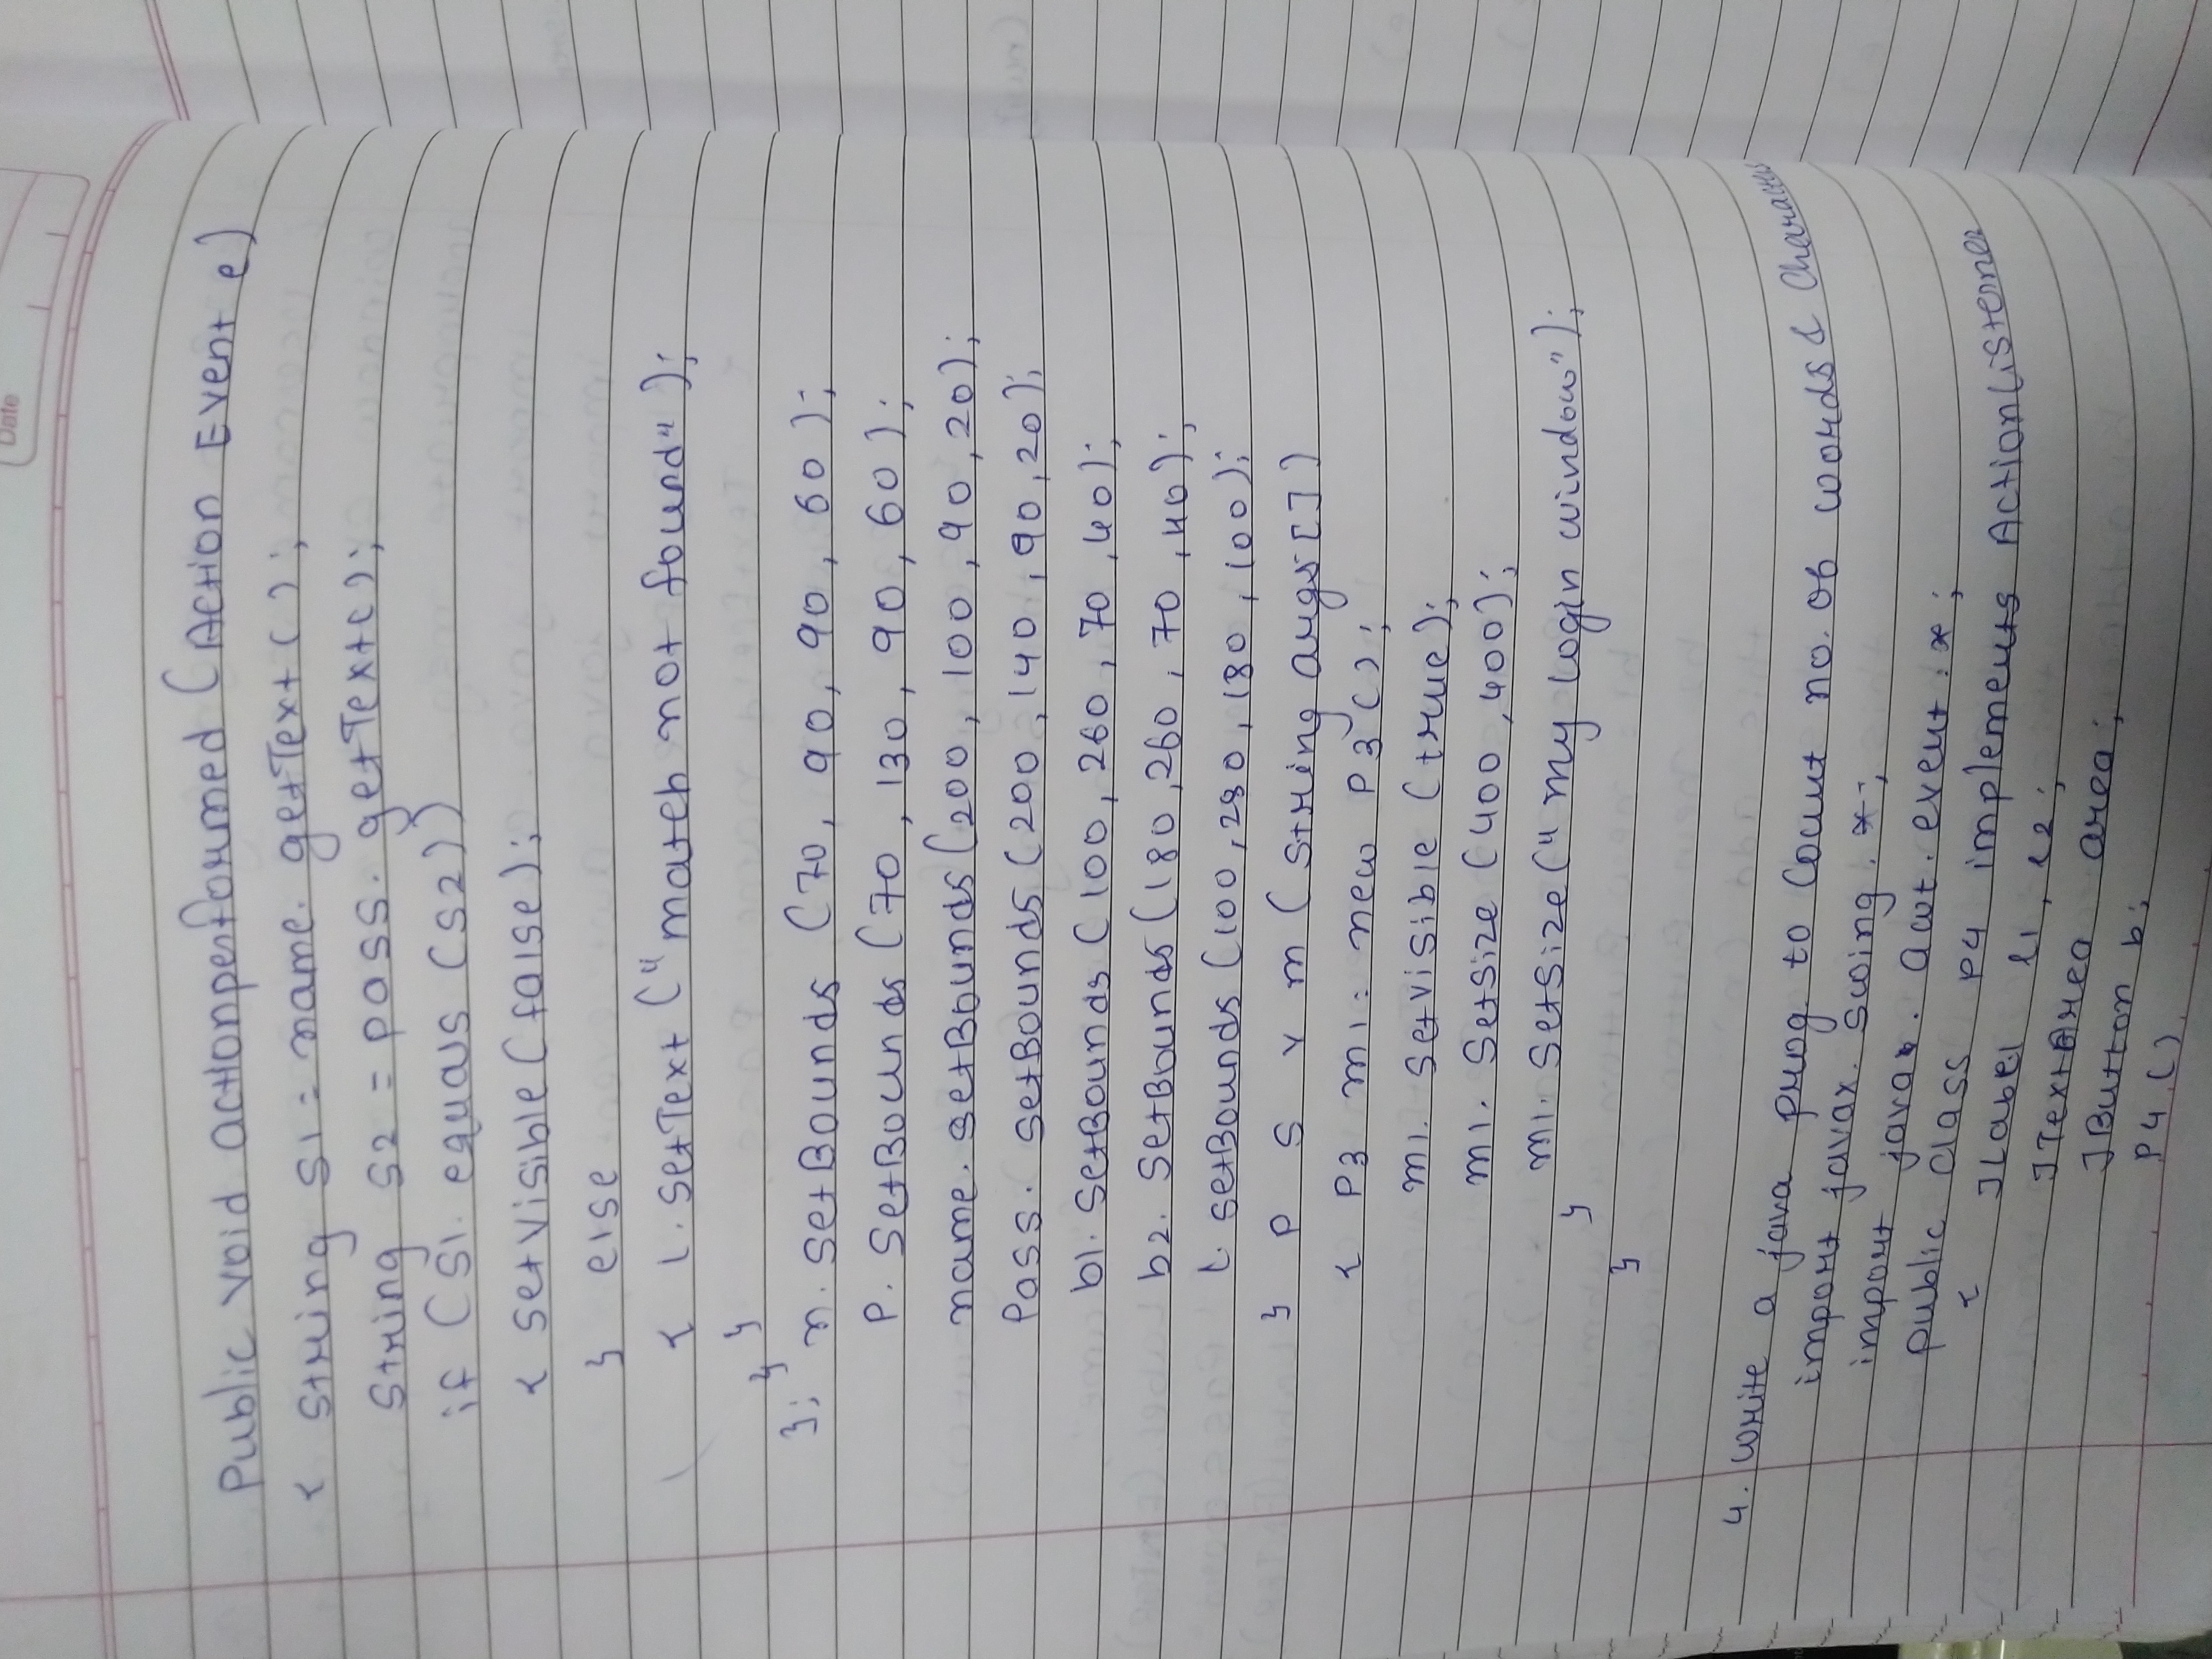 Date
Public void actionperformed (Action Event e)
{ String S1 = name. getText ( );
String S2 = pass. getText( );
if (S1. equals (S2))
{ setVisible (false);
} else
{ l. setText ("match not found");
}
}
}; n. setBounds (70, 90, 90, 60 );
P. SetBounds (70, 130, 90, 60 );
name. setBounds (200, 100, 90, 20);
Pass. setBounds (200, 140, 90, 20);
b1. SetBounds (100, 260, 70, 40);
b2. SetBounds (180, 260, 70, 40);
l. setBounds (100, 280, 180, 100);
} P S v m ( String args [ ] )
{ P3 m1 = new P3 ( );
m1. setvisible (true);
m1. SetSize (400, 400);
m1. SetSize (" my login window");
}
}
4. Write a java prog to Count no. of words & Characters
import javax. swing. *;
import java. awt. event. *;
public class P4 implements ActionListerner
{ JLabel l1, l2;
JTextArea area;
JButton b;
P4 ( )